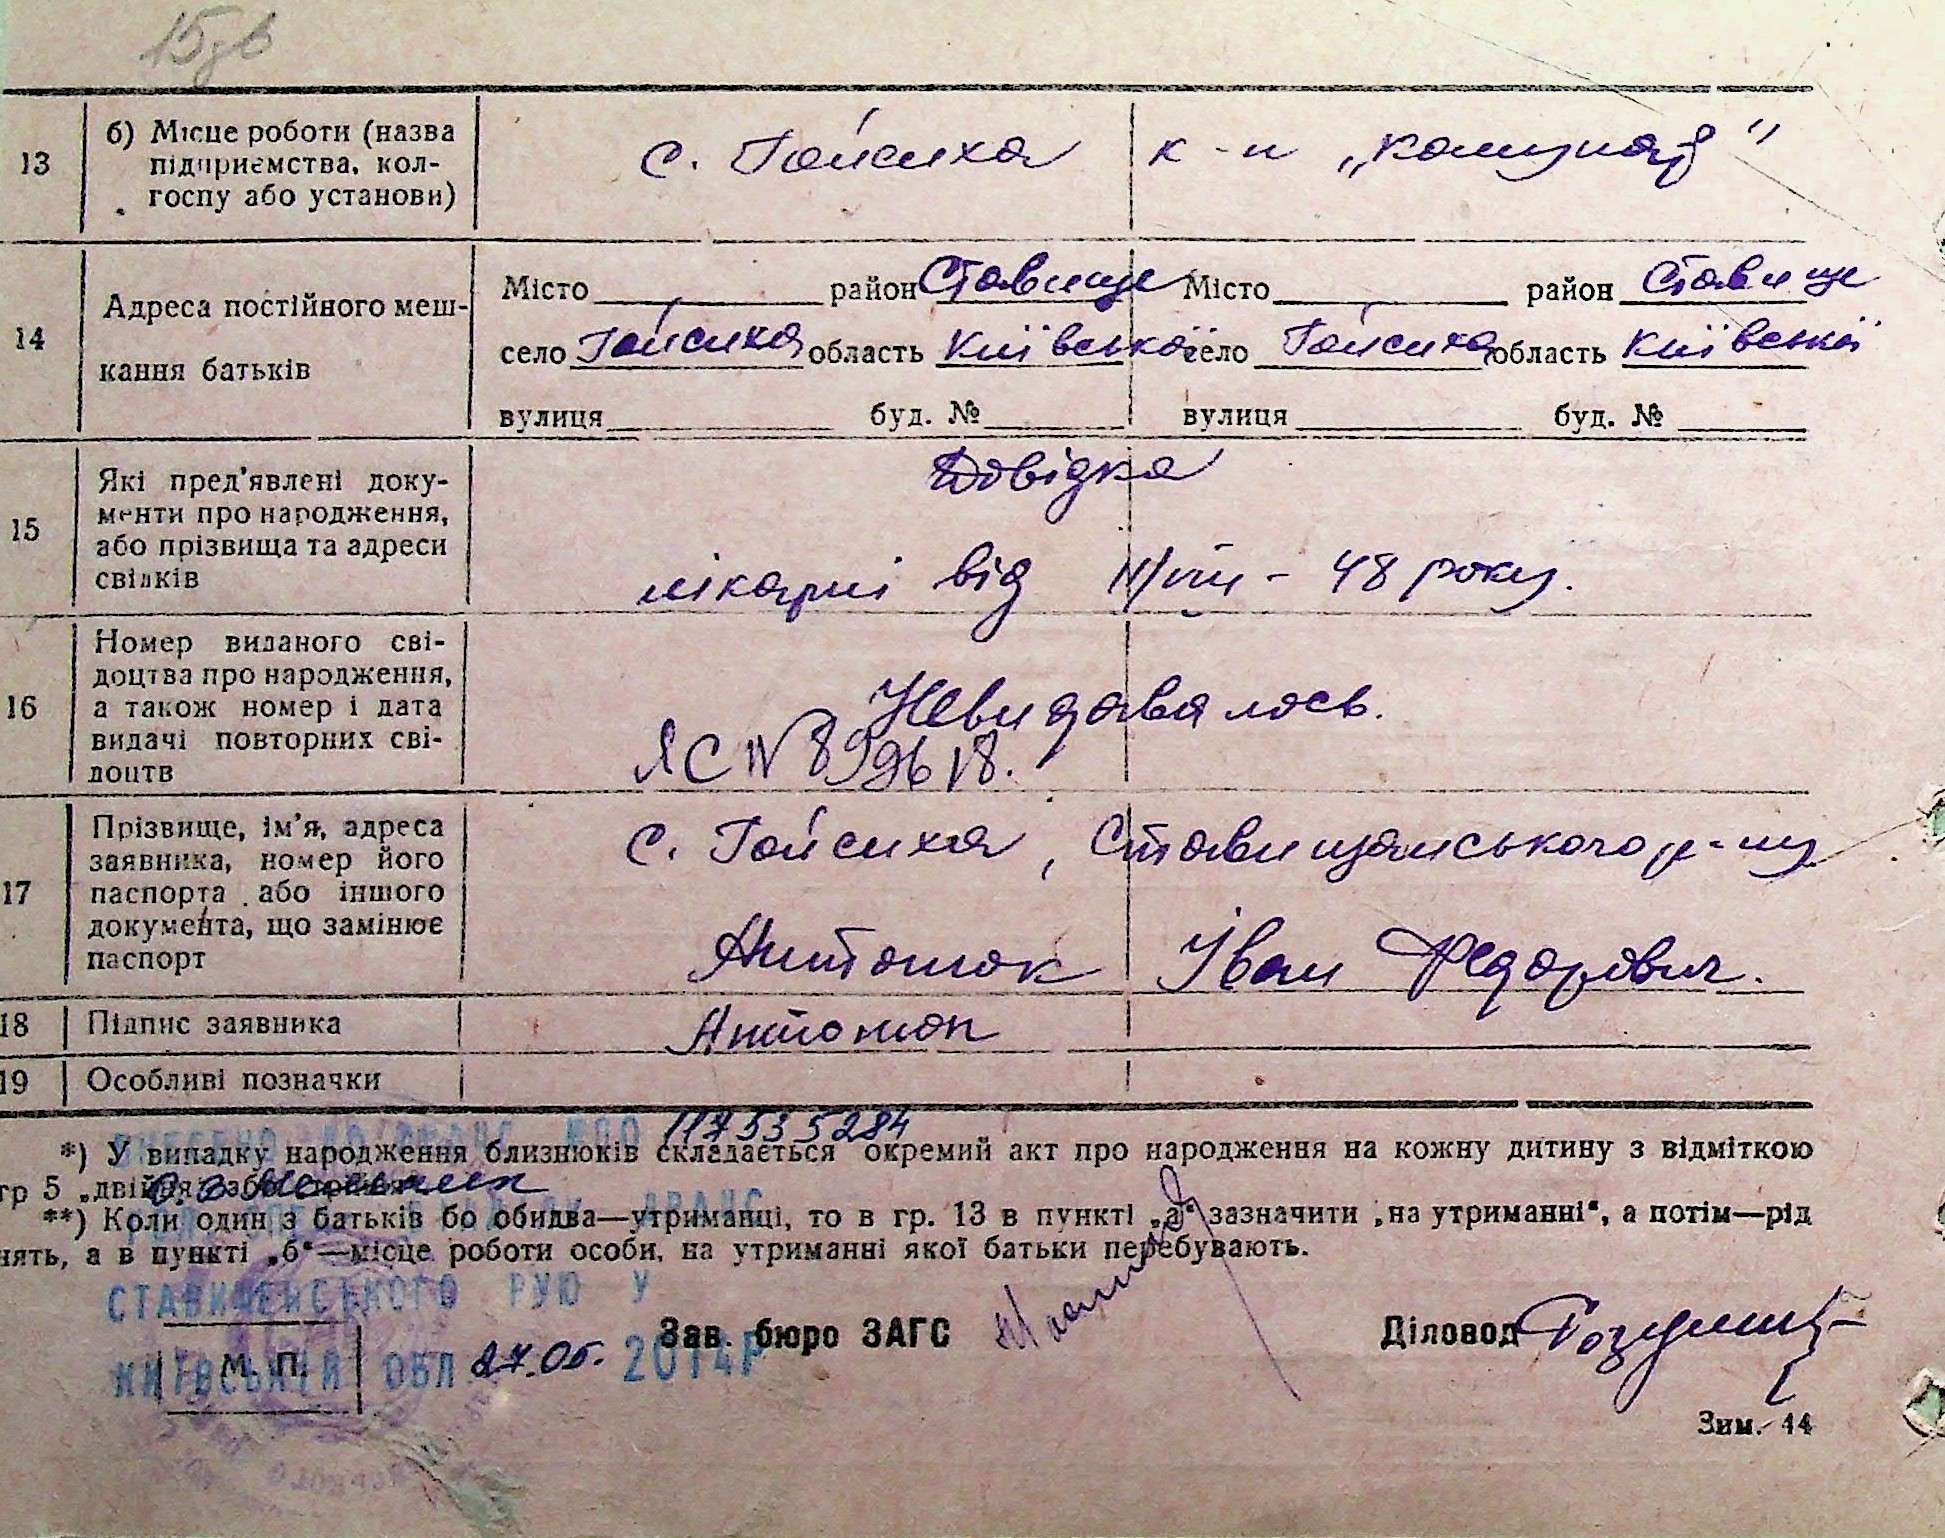 13
б) Місце роботи (назва
підприємства, кол-
госпу або установи)
с. Гойсиха к-п „комунар"
14
Адреса постійного меш-
кання батьків
Місто район Ставище
село Гойсиха область Київської
вулиця буд. №
Місто район Ставище
село Гойсиха область Київської
вулиця буд. №
15
Які пред'явлені доку-
менти про народження,
або прізвища та адреси
свідків
Довідка
лікарні від - 48 року.
16
Номер виданого сві-
доцтва про народження,
а також номер і дата
видачі повторних сві-
доцтв
Невидавалось.
ЯС № 899618.
17
Прізвище, ім'я, адреса
заявника, номер його
паспорта або іншого
документа, що замінює
паспорт
с. Гойсиха, Ставищанського р-ну
Антонюк Іван Федорович.
18
Підпис заявника
Антонюк
19
Особливі позначки
117535284
*) У випадку народження близнюків складається окремий акт про народження на кожну дитину з відміткою
гр 5 „двійня" або
**) Коли один з батьків бо обидва—утриманці, то в гр. 13 в пункті „а" зазначити „на утриманні", а потім—рід
нять, а в пункті „б"—місце роботи особи, на утриманні якої батьки перебувають.
СТАВИЩЕНСЬКОГО РУЮ У
КИЇВСЬКІЙ ОБЛ 27.05. 2014Р
М. П.
Зав. бюро ЗАГС
Діловод
Зим. 44